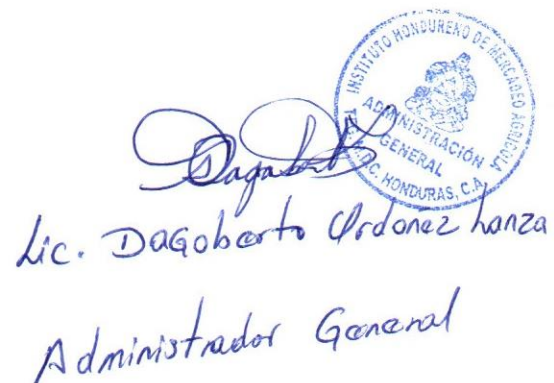 INSTITUTO HONDUREÑO DE MERCADEO AGRICOLA
ADMINISTRACIÓN
GENERAL
HONDURAS, C.A.
Dagobert
Lic. Dagoberto Ordonez Lanza
Administrador General